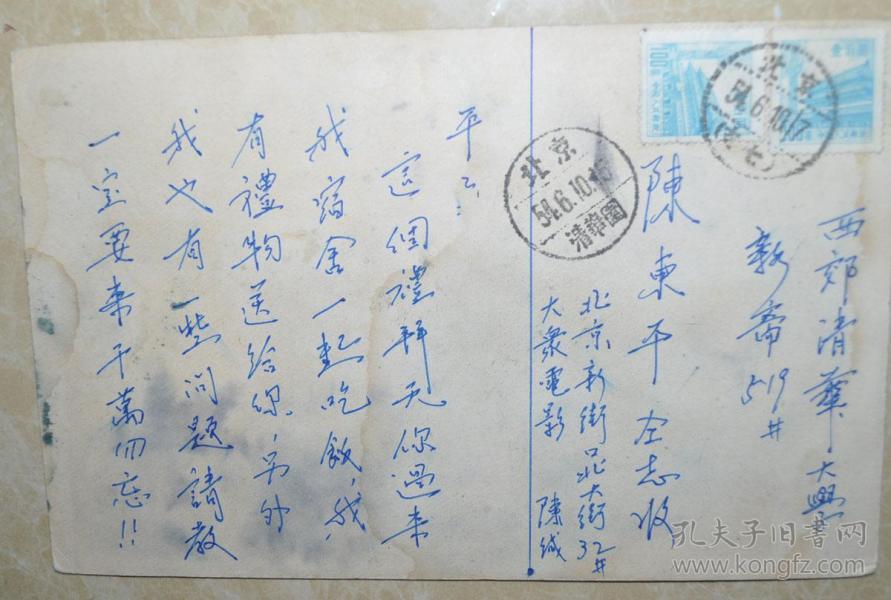 西郊清華大學
新齋519#
陳東平仝志收
北京新街口北大街32#
大衆電影 陳緘
平:
這個禮拜天你過來
我宿舍一起吃飯,我
有禮物送給你,另外
我也有一些問題請教
一定要來千萬勿忘!!
北京
54.6.10.17
北京
54.6.10.
清華園
孔夫子旧书网
www.kongfz.com